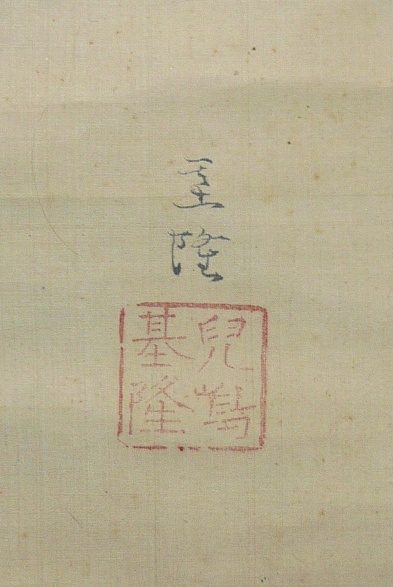 基隆
兒嶌
基隆